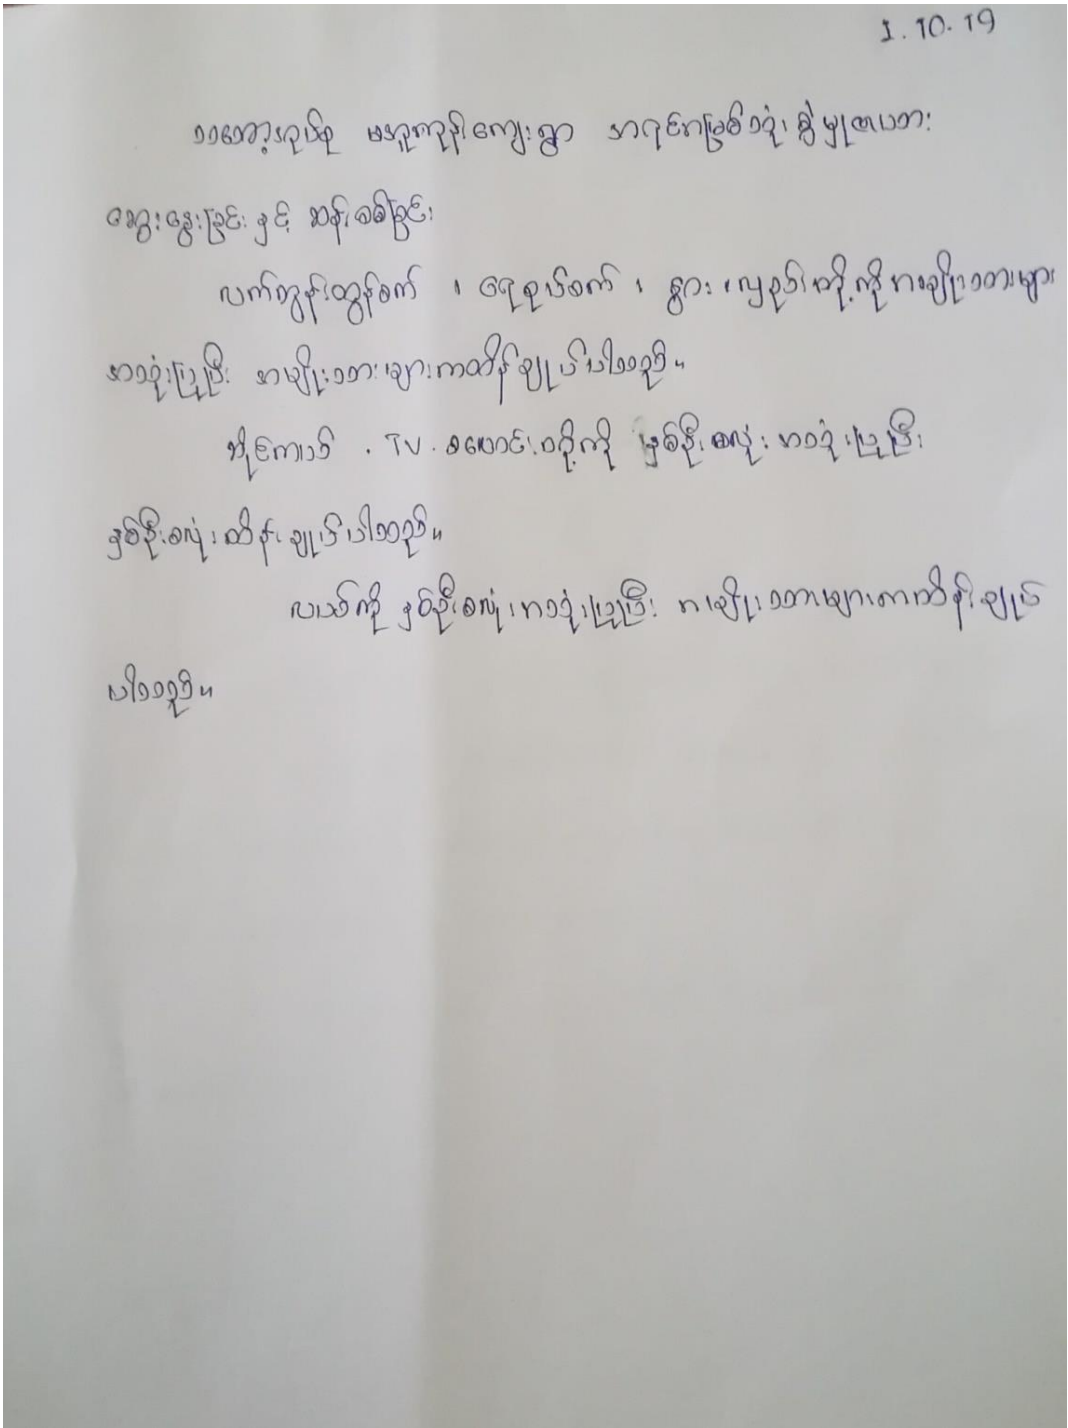 1.10.19
ကျေးရွာ အရင်းအမြစ်သုံးစွဲမှုဇယား
ဆွေးနွေးခြင်းနှင့် ဆန်းစစ်ခြင်း
လက်တွန်းထွန်စက် ၊ ရေစုပ်စက် ၊ နွား ၊ လှည်းတို့ကို အမျိုးသားများ
အသုံးပြုပြီး အမျိုးသားများကထိန်းချုပ်ပါသည်။
ဆိုင်ကယ် . TV . စလောင်းတို့ကို နှစ်ဦးစလုံး အသုံးပြုပြီး
နှစ်ဦးစလုံးထိန်းချုပ်ပါသည်။
လယ်ကို နှစ်ဦးစလုံးအသုံးပြုပြီး အမျိုးသားများကထိန်းချုပ်
ပါသည်။